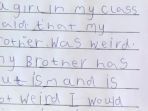 a girl in my class
said that my
rother was weird.
my Brother has
utism and is
ot weird I would